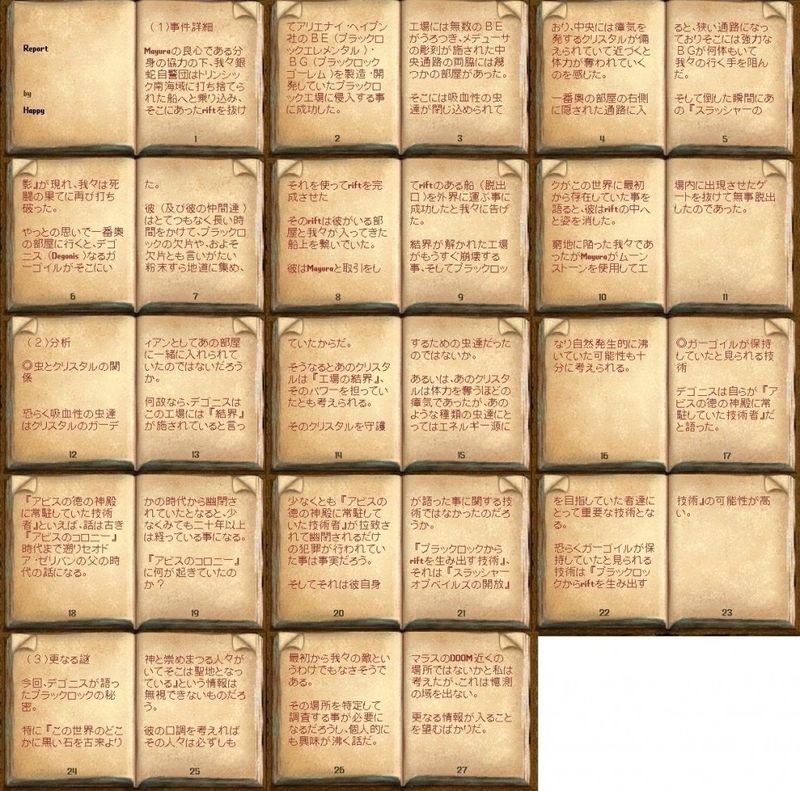 Report
by
Happy
(1)事件詳細
Mayuraの良心である分
身の協力の下、我々銀
蛇自警団はトリンシッ
ク南海域に打ち捨てら
れた船へと乗り込み、
そこにあったriftを抜け
1
てアリエナイ・ヘイブン
社のBE(ブラックロ
ックエレメンタル)・
BG(ブラックロック
ゴーレム)を製造・開
発していたブラックロ
ック工場に侵入する事
に成功した。
2
工場には無数のBE
がうろつき、メデューサ
の彫刻が施された中
央通路の両脇には幾
つかの部屋があった。
そこには吸血性の虫
達が閉じ込められて
3
おり、中央には瘴気を
発するクリスタルが備
えられていて近づくと
体力が奪われていく
のを感じた。
一番奥の部屋の右側
に隠された通路に入
4
ると、狭い通路になっ
ておりそこには強力な
BGが何体もいて
我々の行く手を阻ん
だ。
そして倒した瞬間にあ
の『スラッシャーの
5
影』が現れ、我々は死
闘の果てに再び打ち
破った。
やっとの思いで一番奥
の部屋に行くと、デゴ
ニス(Degonis)なるガ
ーゴイルがそこにい
6
た。
彼(及び彼の仲間達)
はとてつもなく長い時
間をかけて、ブラックロ
ックの欠片や、およそ
欠片とも言いがたい
粉末すら地道に集め、
7
それを使ってriftを完
成させた
そのriftは彼がいる部
屋と我々が入ってきた
船上を繋いでいた。
彼はMayuraと取引をし
8
てriftのある船(脱出
口)を外界に運ぶ事に
成功したと我々に告げ
た。
結界が解かれた工場
がもうすぐ崩壊する
事、そしてブラックロッ
9
クがこの世界に最初
から存在していた事を
語ると、彼はriftの中へ
と姿を消した。
窮地に陥った我々であ
ったがMayuraがムーン
ストーンを使用して工
10
場内に出現させたゲー
トを抜けて無事脱出
したのであった。
11
(2)分析
◎虫とクリスタルの関
係
恐らく吸血性の虫達
はクリスタルのガーデ
12
ィアンとしてあの部屋
に一緒に入れられて
いたのではないだろう
か。
何故なら、デゴニスは
この工場には『結界』
が施されていると言っ
13
ていたからだ。
そうなるとあのクリスタ
ルは『工場の結界』、
そのパワーを担ってい
たとも考えられる。
そのクリスタルを守護
14
するための虫達だった
のではないか。
あるいは、あのクリスタ
ルは体力を奪うほどの
瘴気であったが、あの
ような種類の虫達にと
ってはエネルギー源に
15
なり自然発生的に沸
いていた可能性も十
分に考えられる。
16
◎ガーゴイルが保持
していたと見られる技
術
デゴニスは自らが『ア
ビスの徳の神殿に常
駐していた技術者』だ
と語った。
17
『アビスの徳の神殿
に常駐していた技術
者』といえば、話は古き
『アビスのコロニー』
時代まで遡りセオド
ア・ゼリバンの父の時
代の話になる。
18
かの時代から幽閉さ
れていたとなると、少
なくみても二十年以上
は経っている事になる。
『アビスのコロニー』
に何が起きていたの
か?
19
少なくとも『アビスの
徳の神殿に常駐して
いた技術者』が拉致さ
れて幽閉されるだけ
の犯罪が行われてい
た事は事実だろう。
そしてそれは彼自身
20
が語った事に関する技
術ではなかったのだろ
うか。
『ブラックロックから
riftを生み出す技術』、
それは『スラッシャー
オブベイルズの開放』
21
を目指していた者達に
とって重要な技術とな
る。
恐らくガーゴイルが保
持していたと見られる
技術は『ブラックロッ
クからriftを生み出す
22
技術』の可能性が高
い。
23
(3)更なる謎
今回、デゴニスが語っ
たブラックロックの秘
密。
特に『この世界のどこ
かに黒い石を古来より
24
神と崇めまつる人々が
いてそこは聖地となっ
ている』という情報は
無視できないものだろ
う。
彼の口調を考えれば
その人々は必ずしも
25
最初から我々の敵とい
うわけでもなさそうで
ある。
その場所を特定して
調査する事が必要に
なるだろうし、個人的に
も興味が沸く話だ。
26
マラスのDOOM近くの
場所ではないかと私は
考えたが、これは憶測
の域を出ない。
更なる情報が入ること
を望むばかりだ。
27